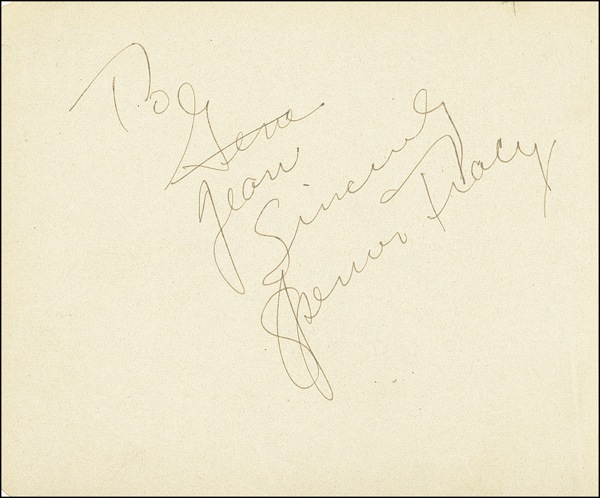 To
Gene
Jean
Sincerely
Spencer Tracy